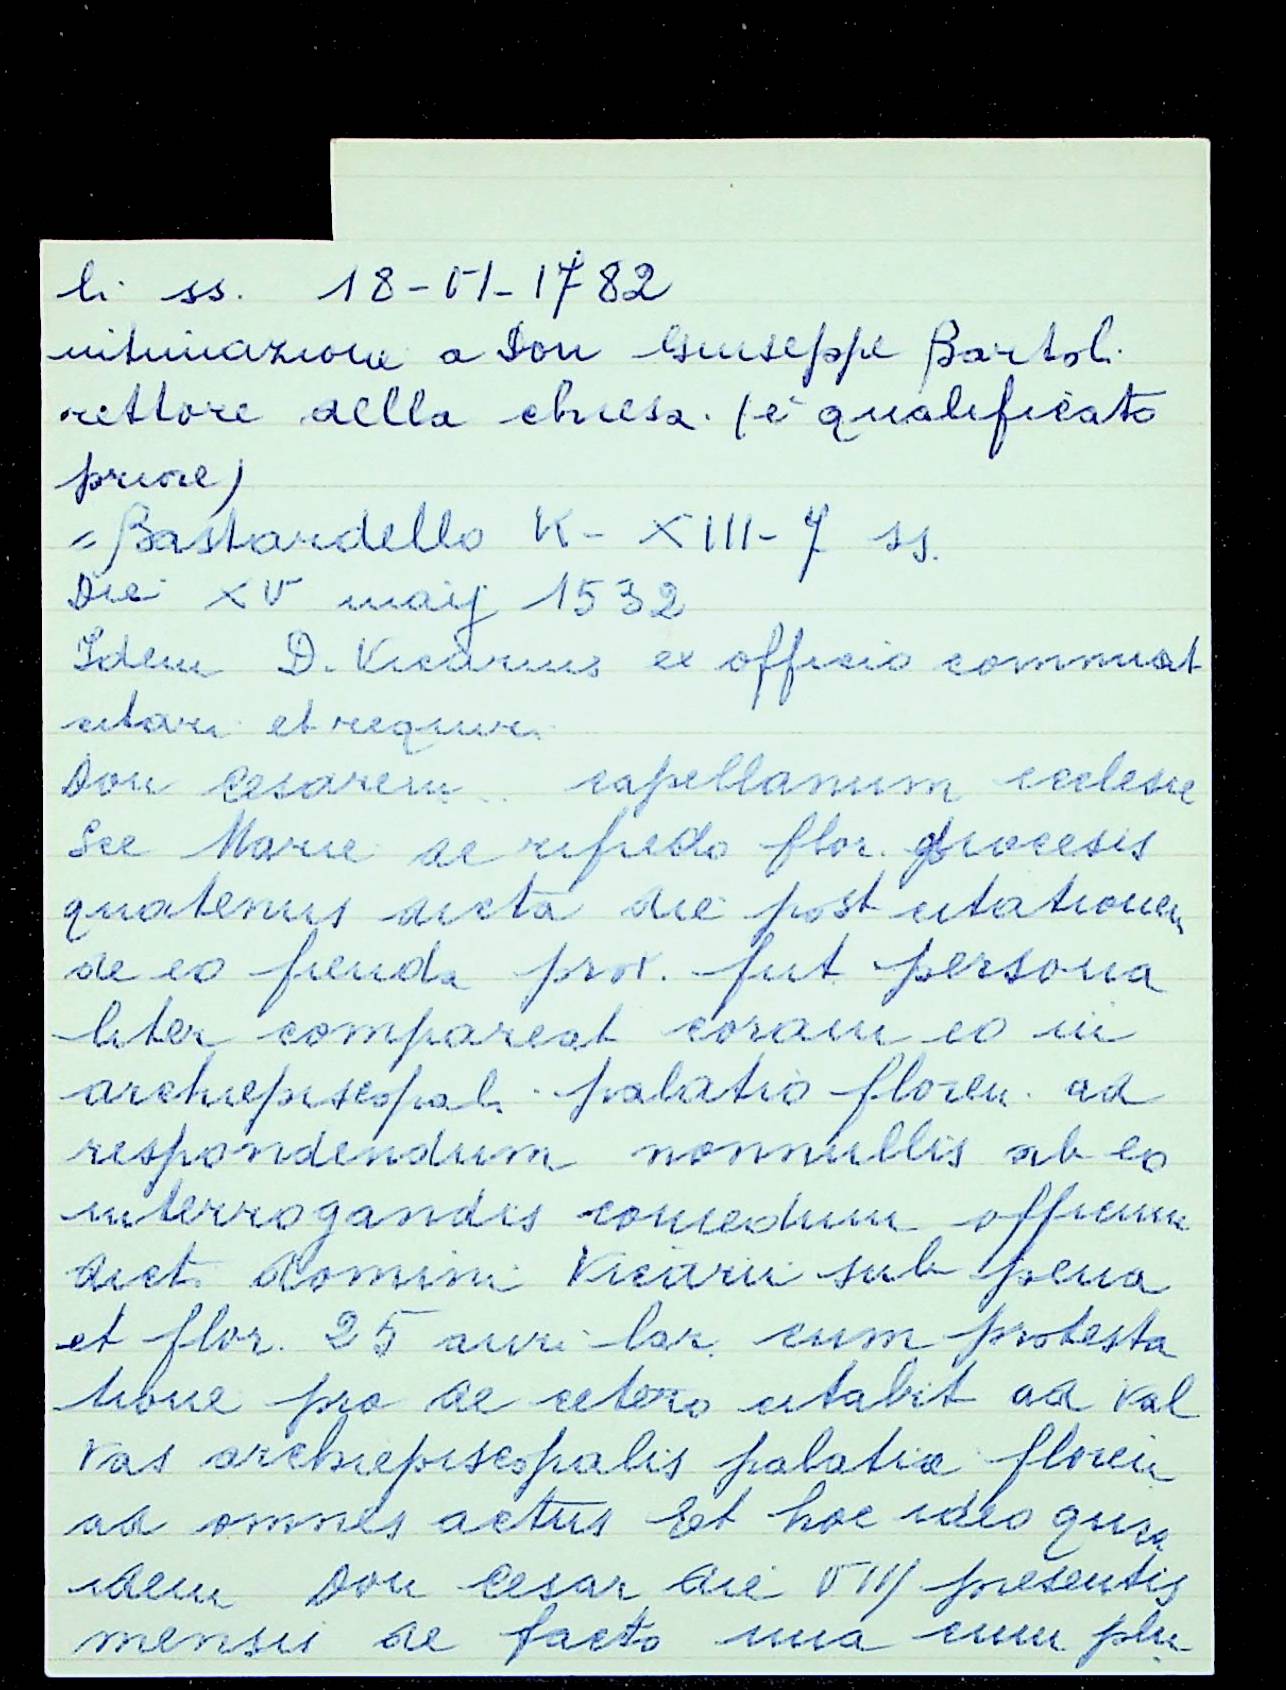 li ss. 18-VI-1782
intimazione a Don Giuseppe Bartoli
rettore della chiesa. (è qualificato
priore)
= Bastardello K- XIII-7 ss.
Die XV maij 1532
Idem D. Vicarius ex officio commisit
citari et requiri
Don Cesarem .. capellanum ecclesie
Sce Marie de rifredo flor. diocesis
quatenus dicta die post citationem
de eo fienda prox. fut persona
liter compareat coram eo in
archiepiscopali palatio floren. ad
respondendum nonnullis ab eo
interrogandis officium
dicti domini Vicarii sub pena
et flor. 25 auri lar. cum protesta
tione pro de cetero citabit ad val
vas archiepiscopalis palatia floren
ad omnes actus Et hoc ideo quia
idem Don Cesar die VIII presentis
mensis de facto una cum plu